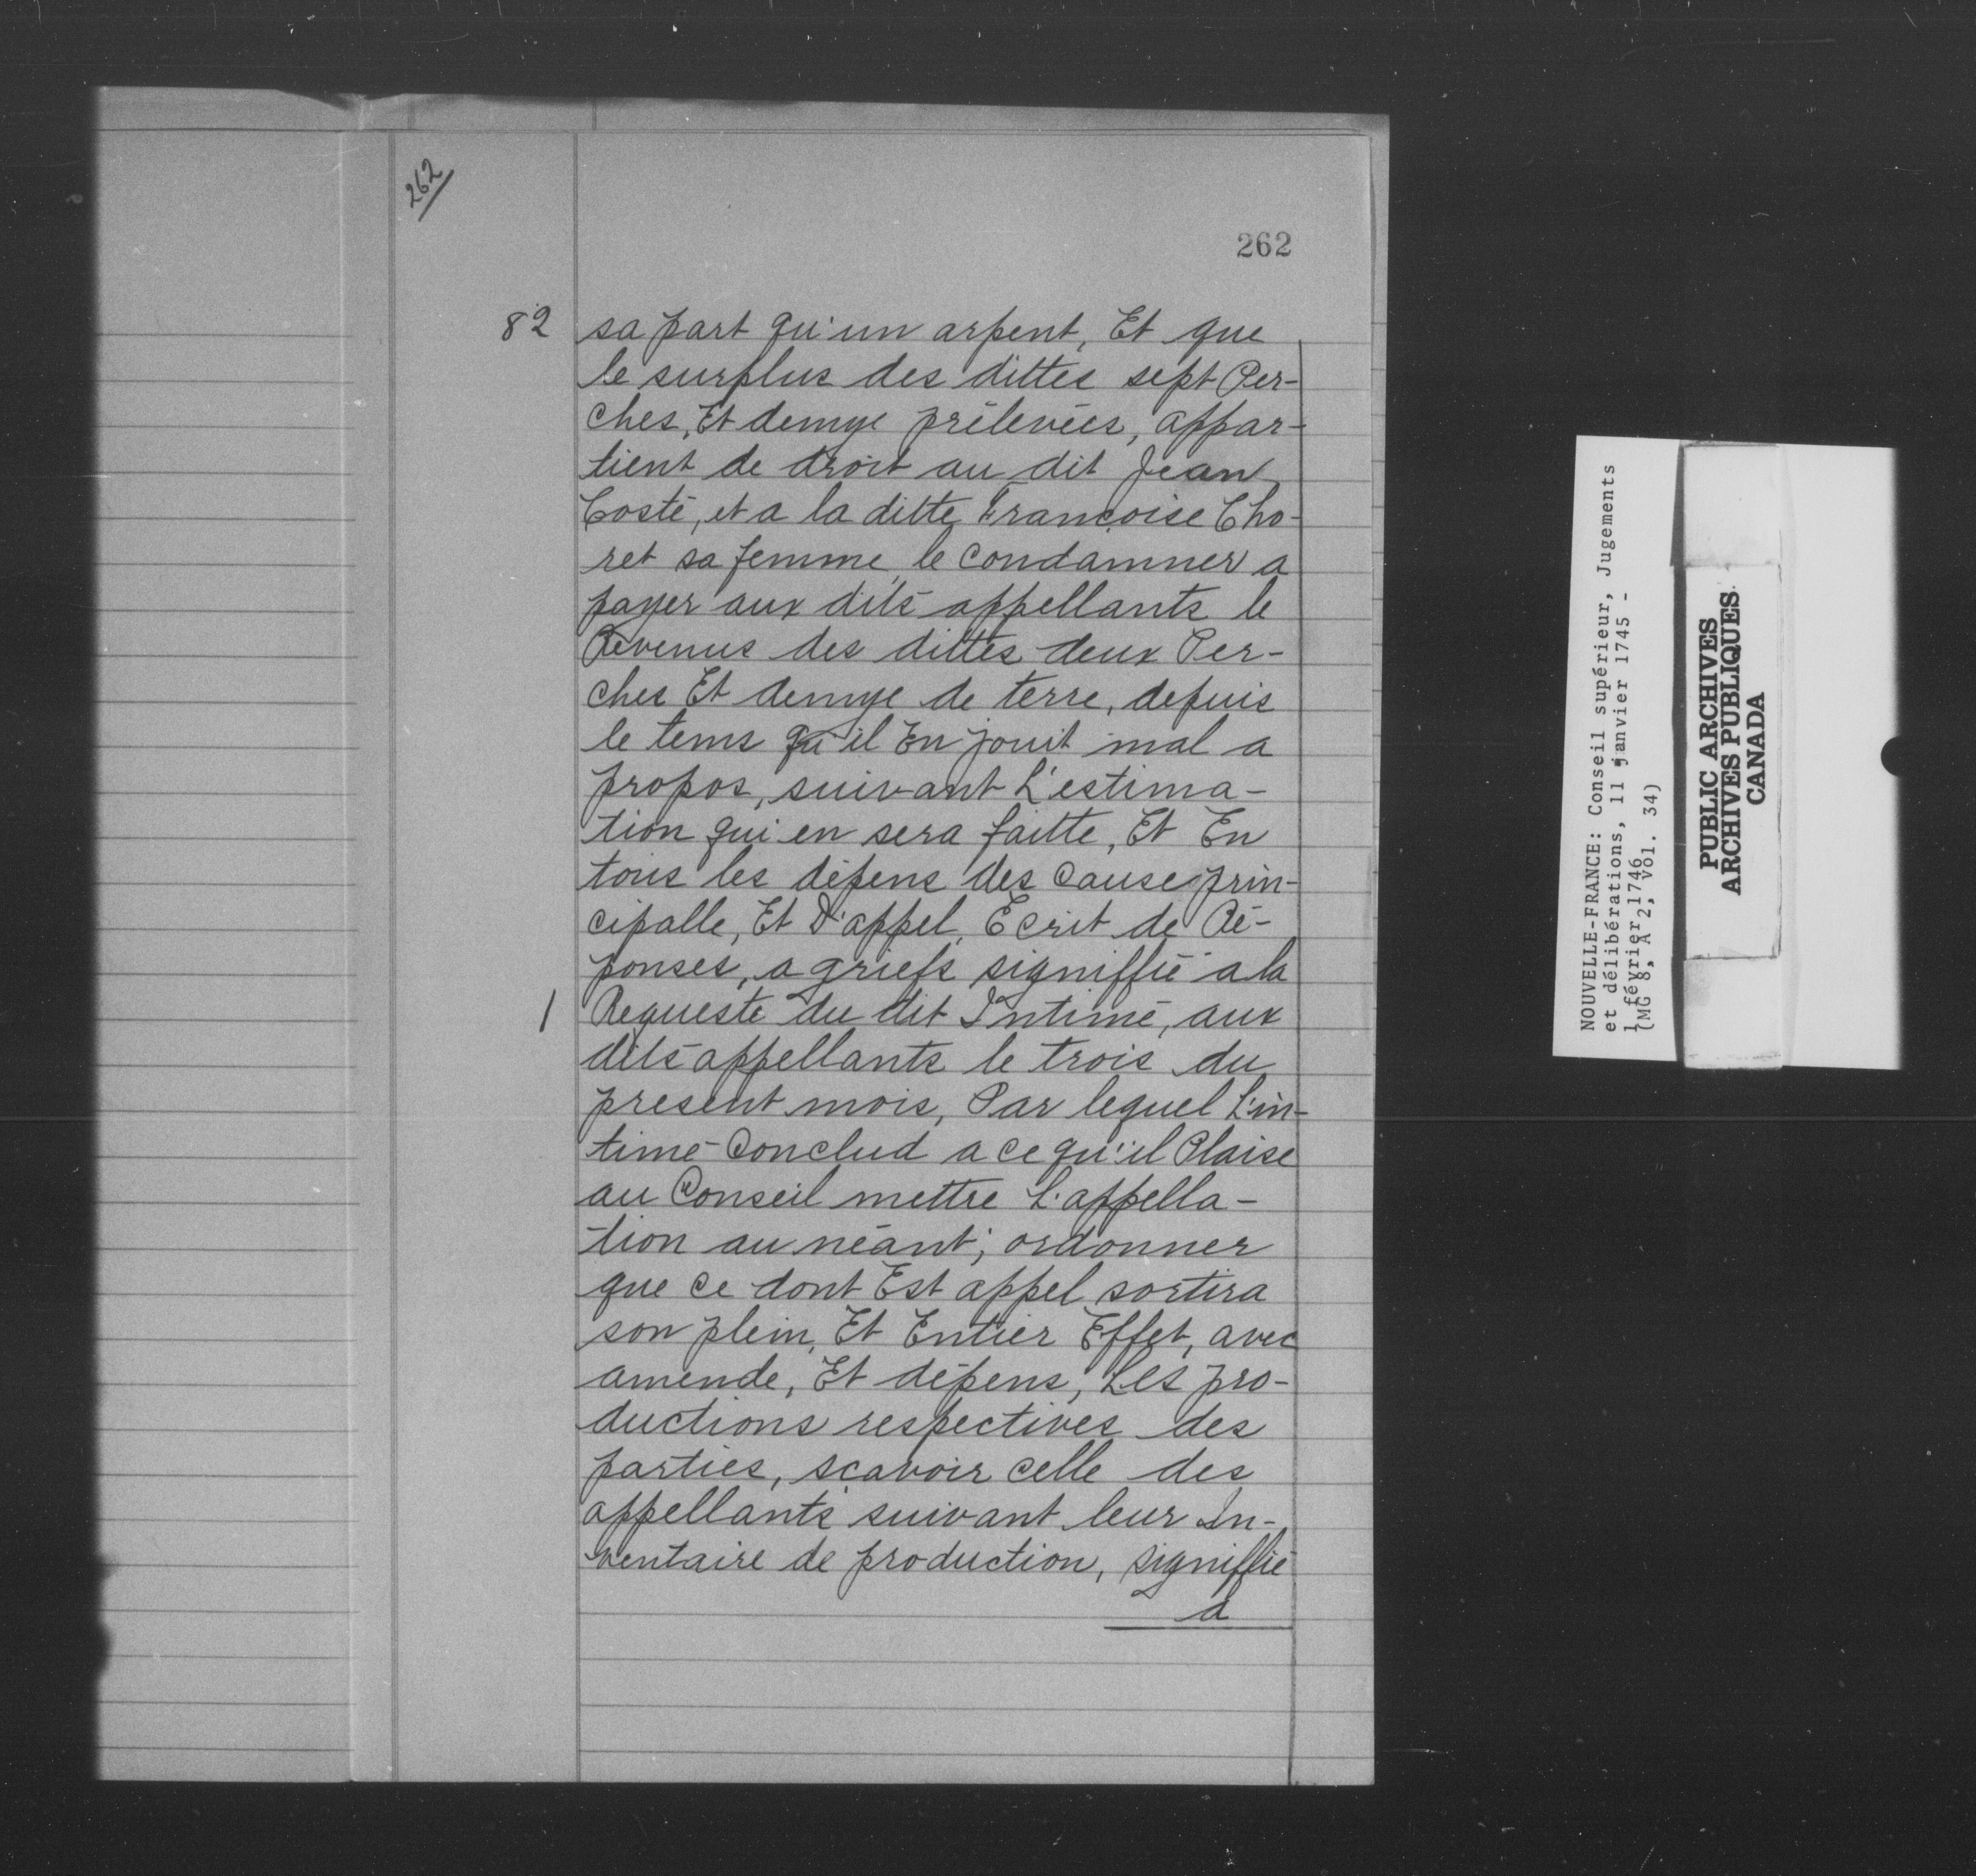 262
262
82
sa part qu'un arpent, Et que
le surplus des dittes sept Per-
ches, Et demye prélevées, appar-
tient de droit au dit Jean
Costé, et a la ditte Françoise Cho-
ret sa femme, le condamner a
payer aux dits appellants le
Revenus des dittes deux Per-
ches Et demye de terre, depuis
le tems qu'il En jouit mal a
propos, suivant L'estima-
tion qui en sera faitte, Et En
tous les dépens des cause prin-
cipalle, Et D'appel, Ecrit de Ré-
ponses, a griefs signiffié a la
1
Requeste du dit Intimé, aux
dits appellants le trois du
present mois, Par lequel L'in-
timé Conclud a ce qu'il Plaise
au Conseil mettre L'appella-
tion au néant; ordonner
que ce dont Est appel sortira
son plein, Et Entier Effet, avec
amende, Et dépens, Les pro-
ductions respectives des
parties, sçavoir celle des
appellants suivant leur In-
ventaire de production, signiffié
a
NOUVELLE-FRANCE: Conseil supérieur, Jugements
et délibérations, 11 janvier 1745 -
1 février 1746
(MG 8, A 2, vol. 34)
PUBLIC ARCHIVES
ARCHIVES PUBLIQUES
CANADA